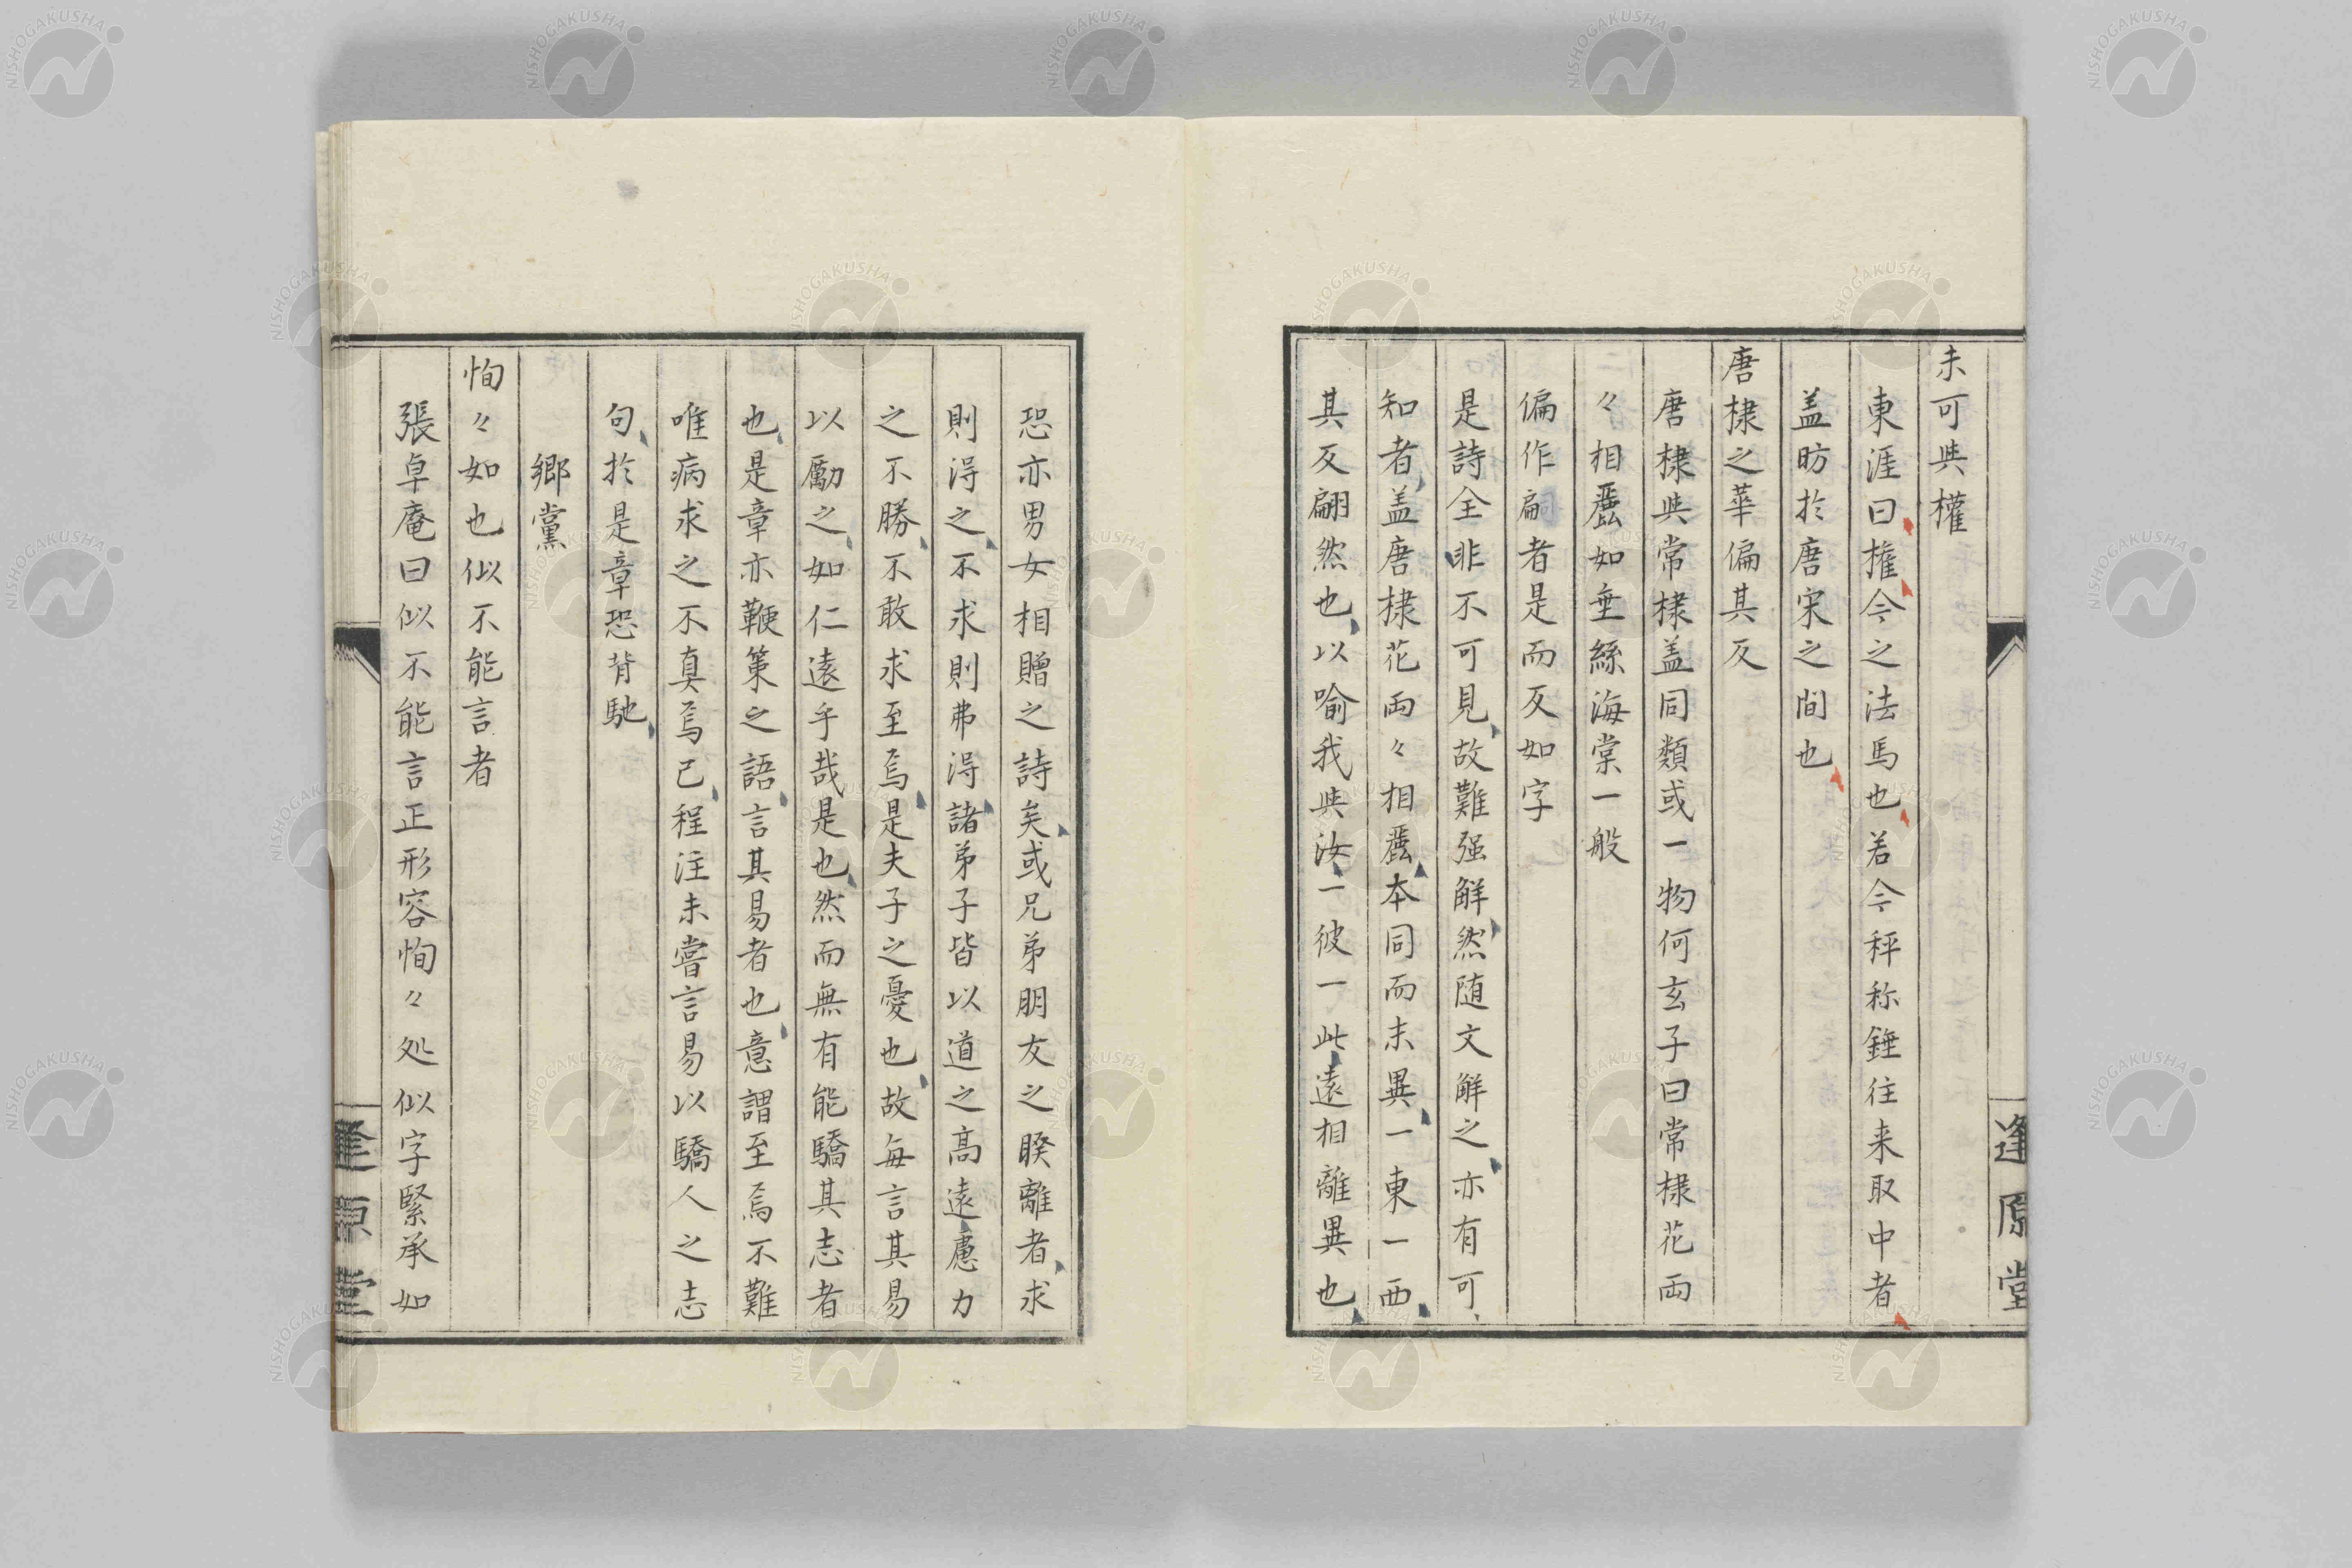 未可與權
東涯曰權今之法馬也若今秤称錘往来取中者
盖昉於唐宋之間也
唐棣之華偏其反
唐棣與常棣盖同類或一物何玄子曰常棣花兩
々相麗如垂絲海棠一般
偏作扁者是而反如字
是詩全非不可見故難强解然随文解之亦有可
知者盖唐棣花両々相麗本同而未異一東一西
其反翩然也以喻我與汝一彼一此遠相離異也
逢原堂
恐亦男女相贈之詩矣或兄弟朋友之睽離者求
則得之不求則弗得諸弟子皆以道之高遠慮力
之不勝不敢求至焉是夫子之憂也故每言其易
以勵之如仁遠乎哉是也然而無有能驕其志者
也是章亦鞭策之語言其易者也意謂至焉不難
唯病求之不真焉已程注未嘗言易以驕人之志
句於是章恐背馳
鄉黨
恂々如也似不能言者
張卓庵曰似不能言正形容恂々処似字緊承如
逢原堂
NISHOGAKUSHA